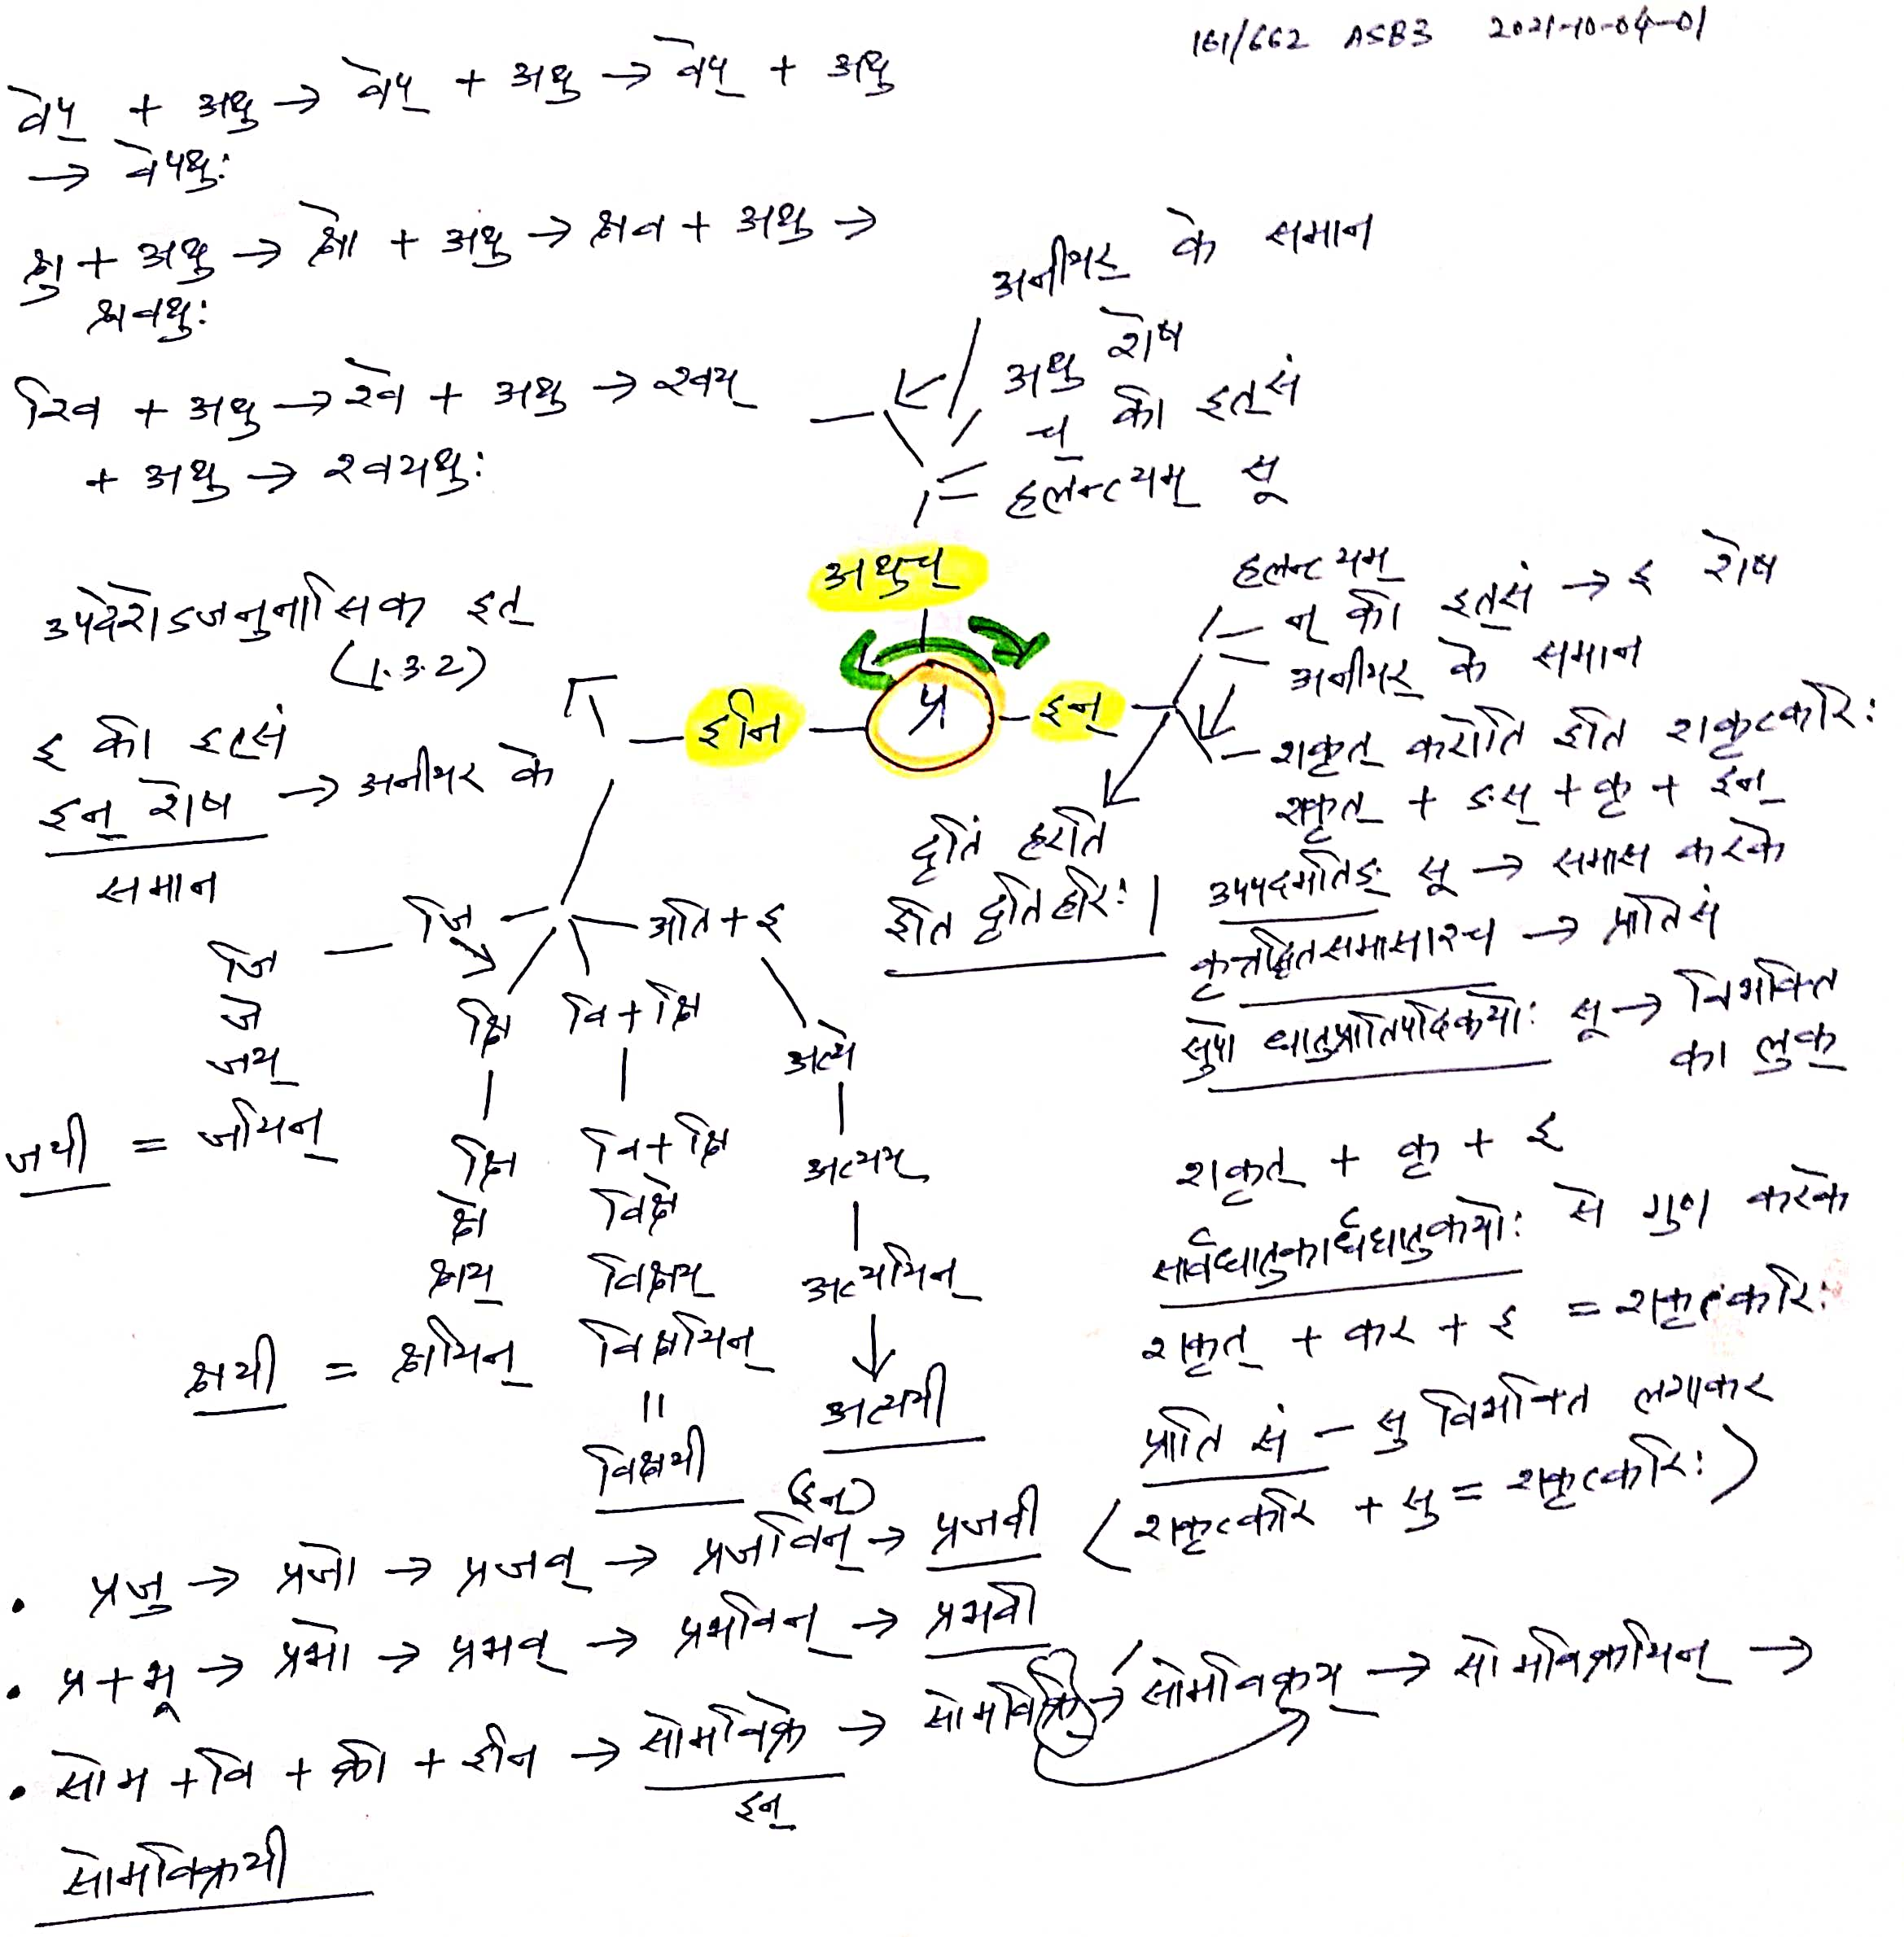 161/662 ASB3 2021-10-04-01
वेप् + अथु → वेप् + अथु → वेप् + अथु
→ वेपथुः
क्षु + अथु → क्षो + अथु → क्षव + अथु →
क्षवथुः
श्वि + अथु → श्वे + अथु → श्वय्
+ अथु → श्वयथुः
अनीयर् के समान
अथु शेष
च् की इत्सं
हलन्त्यम् सू
अथुच्
प्र
इनि
इन्
उपदेशेऽजनुनासिक इत्
(1.3.2)
इ की इत्सं
इन् शेष → अनीयर के
समान
हलन्त्यम्
न् की इत्सं → इ शेष
अनीयर् के समान
शकृत् करोति इति शकृत्करिः
शकृत् + ङस् + कृ + इन्
उपपदमतिङ् सू → समास करके
कृत्तद्धितसमासाश्च → प्राति सं
सुपो धातुप्रातिपदिकयोः सू → विभक्ति
का लुक्
दृतिं हरति
इति दृतिहरिः |
शकृत् + कृ + इ
सार्वधातुकार्धधातुकयोः से गुण करके
शकृत् + कर + इ = शकृत्करिः
प्राति सं – सु विभक्ति लगाकर
(शकृत्करि + सु = शकृत्करिः)
जि
जि
जे
जय्
जयी = जयिन्
क्षि
क्षि
क्षे
क्षय्
क्षयी = क्षयिन्
वि + क्षि
वि + क्षि
विक्षे
विक्षय्
विक्षयिन्
=
विक्षयी
अति + इ
अत्ये
अत्यय्
अत्ययिन्
↓
अत्ययी
(इन्)
• प्रजु → प्रजो → प्रजव् → प्रजविन् → प्रजवी
• प्र + भू → प्रभो → प्रभव् → प्रभविन् → प्रभवी
• सोम + वि + क्री + इनि → सोमविक्रे → सोमविक्रि → सोमविक्रय् → सोमविक्रयिन् →
इन्
सोमविक्रयी